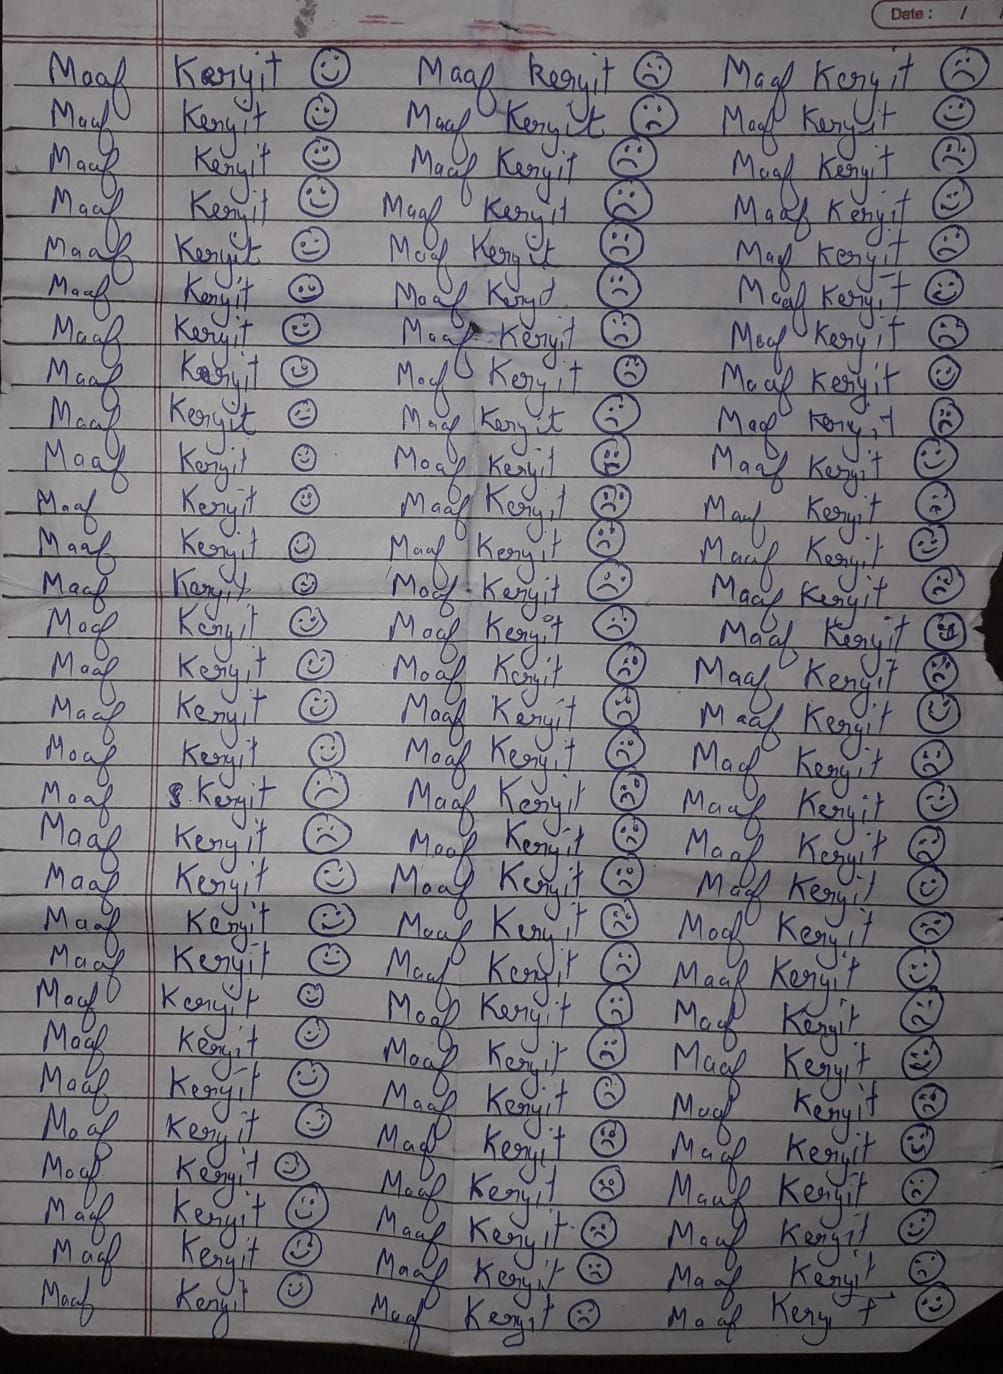 Date : /
Maaf Keryit Maaf keryit Maaf Keryit
Maaf Keryit Maaf Keryit Maaf Keryit
Maaf Keryit Maaf Keryit Maaf Keryit
Maaf Keryit Maaf Keryit Maaf Keryit
Maaf Keryit Maaf Keryit Maaf Keryit
Maaf Keryit Maaf Keryit Maaf Keryit
Maaf Keryit Maaf Keryit Maaf Keryit
Maaf Keryit Maaf Keryit Maaf Keryit
Maaf Keryit Maaf Keryit Maaf Keryit
Maaf Keryit Maaf Keryit Maaf Keryit
Maaf Keryit Maaf Keryit Maaf Keryit
Maaf Keryit Maaf Keryit Maaf Keryit
Maaf Keryit Maaf Keryit Maaf Keryit
Maaf Keryit Maaf Keryit Maaf Keryit
Maaf Keryit Maaf Keryit Maaf Keryit
Maaf Keryit Maaf Keryit Maaf Keryit
Maaf Keryit Maaf Keryit Maaf Keryit
Maaf Keryit Maaf Keryit Maaf Keryit
Maaf Keryit Maaf Keryit Maaf Keryit
Maaf Keryit Maaf Keryit Maaf Keryit
Maaf Keryit Maaf Keryit Maaf Keryit
Maaf Keryit Maaf Keryit Maaf Keryit
Maaf Keryit Maaf Keryit Maaf Keryit
Maaf Keryit Maaf Keryit Maaf Keryit
Maaf Keryit Maaf Keryit Maaf Keryit
Maaf Keryit Maaf Keryit Maaf Keryit
Maaf Keryit Maaf Keryit Maaf Keryit
Maaf Keryit Maaf Keryit Maaf Keryit
Maaf Keryit Maaf Keryit Maaf Keryit
Maaf Keryit Maaf Keryit Maaf Keryit